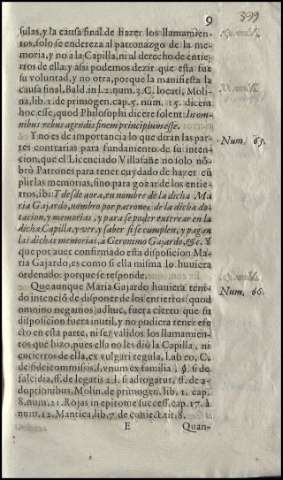 9
399
sulas, y la causa final de hazer los llamamien-
tos, solo se endereza al patronazgo de la me-
moria, y no a la Capilla, ni al derecho de entie-
rros de ella, y asi podemos dezir que esta fue
su voluntad, y no otra, porque la manifiesta la
causa final, Bald. in l. 2. num. 3. C. locati, Moli-
na, lib. 1. de primogen. cap. 5. num. 15. dicens
hoc esse, quod Philosophi dicere solent: In om-
nibus rebus agendis finem principium esse.
Y no es de importancia lo que diràn las par-
tes contrarias para fundamento de su inten-
cion, que el Licenciado Villafañe no solo nõ-
brò Patrones para tener cuydado de hazer cũ
plir las memorias, sino para gozar de los entie-
rros, ibi: Y desde aora, en nombre de la dicha Ma
ria Gajardo, nombro por patrones de la dicha do-
tacion, y memorias, y para se poder enterrar en la
dicha Capilla, y ver, y saber si se cumplen, y pagan
las dichas memorias, a Geronimo Gajardo, &c. Y
que por auer confirmado esta disposicion Ma-
ria Gajardo, es como si ella misma lo huuiera
ordenado: porque se responde.
Num. 65.
Que aunque Maria Gajardo huuiera teni-
do intenciõ de disponer de los entierros (quod
omnino negamus) adhuc, fuera cierto que su
disposicion fuera inutil, y no pudiera tener efe
cto en esta parte, ni ser validos los llamamien-
tos que hizo, pues ello no les diò la Capilla, ni
los entierros de ella, ex vulgari regula, l. ab eo, C.
de fideicommissis, l. vnum ex familia, §. si de
falcidia, ff. de legatis 2. l. si adrogatus, ff. de a-
doptionibus, Molin. de primogen. lib. 1. cap.
8. num. 21. Rojas in epitome success. cap. 17. à
num. 12. Mantica, lib. 7. de coniect. tit. 8.
Num. 66.
E
Quan-